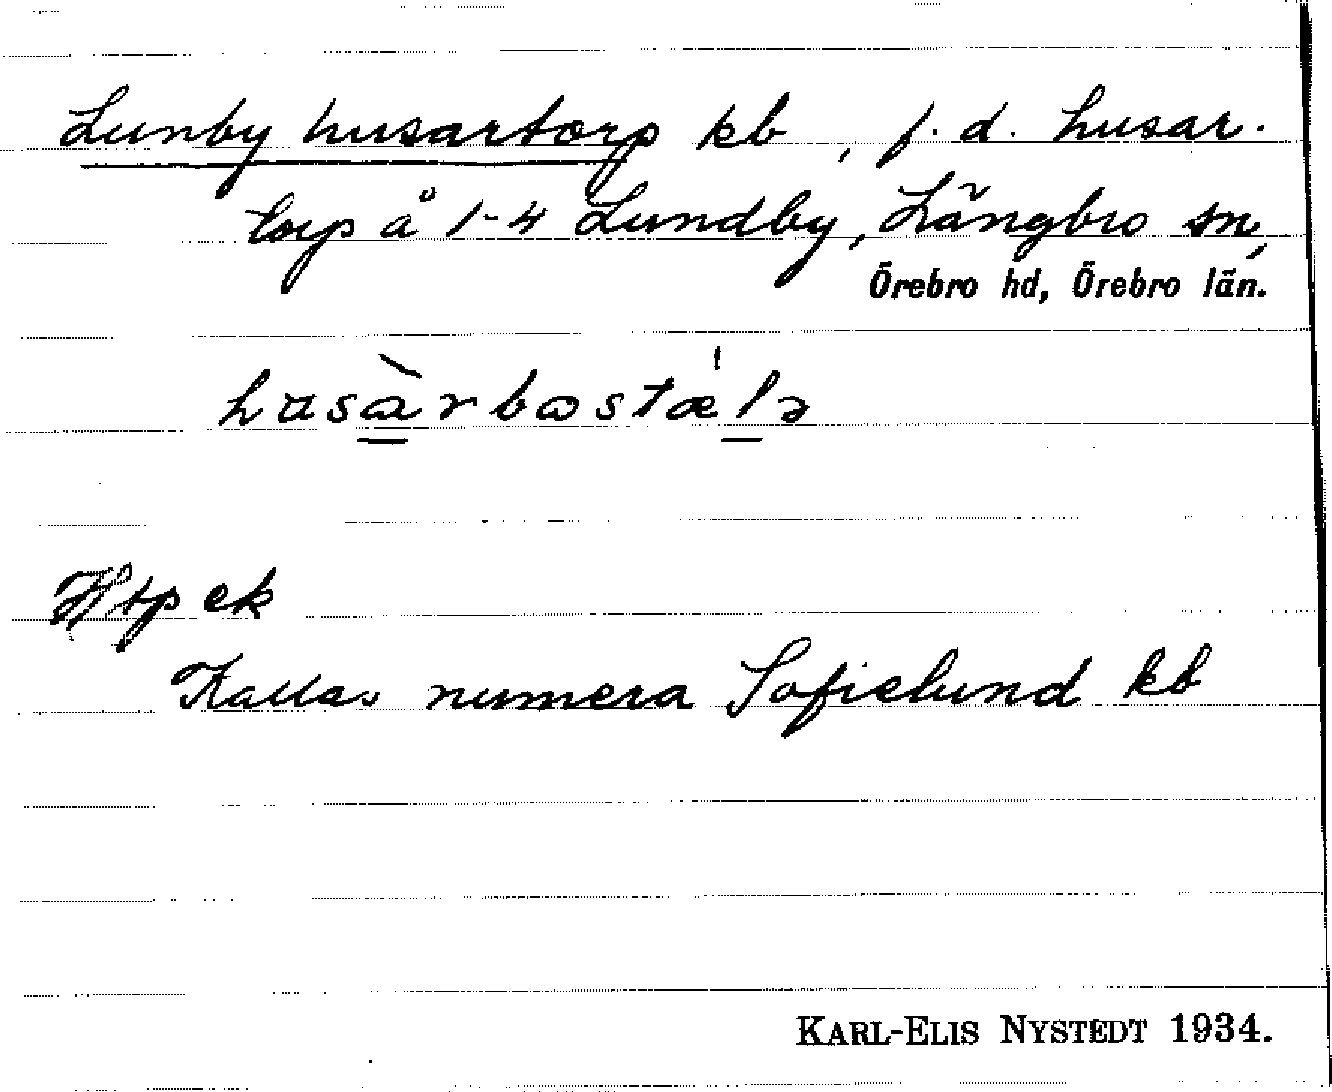 Lunby husartorp kb, f.d. husar-
torp å 1-4 Lundby, Längbro sn,
Örebro hd, Örebro län.
husàrbostæ'lə
Htp ek
Kallas numera Sofielund kb
KARL-ELIS NYSTEDT 1934.